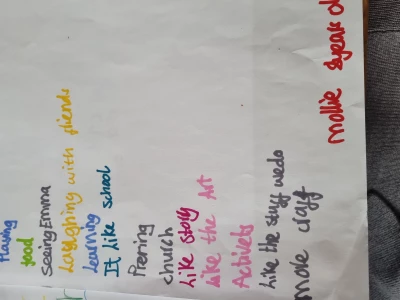 Having
food
SeeingEmma
Laughing with friends
Learning
It like school
Prering
church
Like story
Like the Art
Activets
Like the stuff wedo
more
mollie 8years